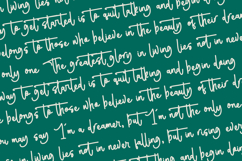 living lies not in never
to get started is to quit talking and begin doing
belongs to those who believe in the beauty of their dre
only one The greatest glory in living lies not in never
way to get started is to quit talking and begin doing
belongs to those who believe in the beauty of their dream
you may say I'm a dreamer, but I'm not the only one
in living lies not in never falling, but in rising ever
to quit talking and begin doing